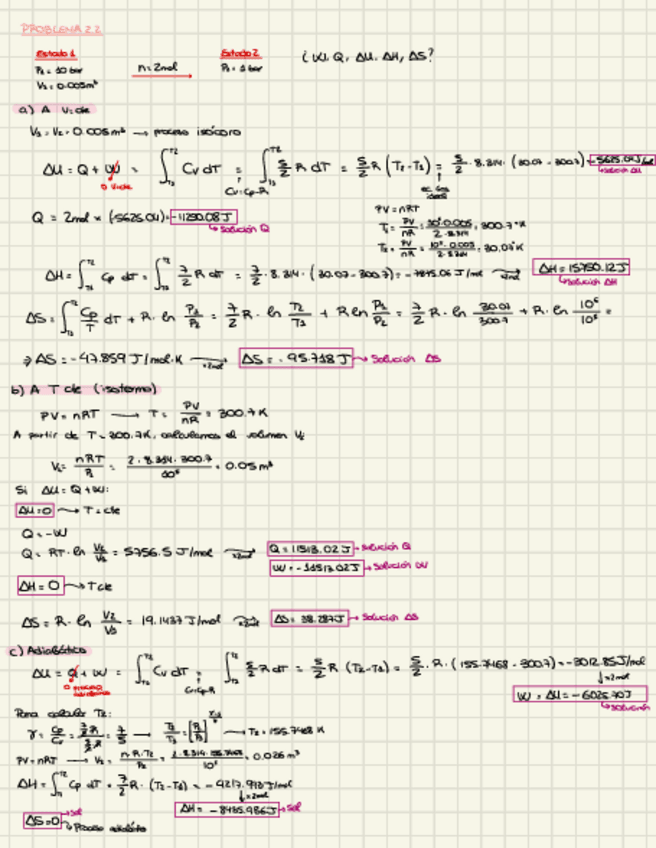 PROBLEMA 2.2
Estado 1
P₁ = 10 bar
V₁ = 0.005m³
n = 2mol
Estado 2
P₂ = 1 bar
¿W, Q, ΔU, ΔH, ΔS?
a) A V cte
V₁ = V₂ = 0.005m³ → proceso isócoro
ΔU = Q + W = ∫ Cv dT = ∫ 5/2 R dT = 5/2 R (T₂-T₁) = 5/2 · 8.314 · (30.07 - 300.7) = -5625.04 J/mol
0 V cte
Cv = Cp-R
ec. gas ideal
Solución ΔU
Q = 2mol × (-5625.04) = -11250.08 J
Solución Q
PV = nRT
T₁ = PV/nR = 10⁶·0.005/2·8.314 = 300.7 K
T₂ = PV/nR = 10⁵·0.005/2·8.314 = 30.07 K
ΔH = ∫ Cp dT = ∫ 7/2 R dT = 7/2 · 8.314 · (30.07 - 300.7) = -7875.06 J/mol →×2mol ΔH = 15750.12 J
Solución ΔH
ΔS = ∫ Cp/T dT + R · ln P₁/P₂ = 7/2 R · ln T₂/T₁ + R ln P₁/P₂ = 7/2 R · ln 30.07/300.7 + R · ln 10⁶/10⁵ =
⇒ ΔS = -47.859 J/mol·K →×2mol ΔS = -95.718 J → Solución ΔS
b) A T cte (isotermo)
PV = nRT → T = PV/nR = 300.7 K
A partir de T = 300.7K, calculamos el volumen V₂
V₂ = nRT/P₂ = 2·8.314·300.7/10⁵ = 0.05 m³
Si ΔU = Q + W:
ΔU = 0 → T = cte
Q = -W
Q = RT · ln V₂/V₁ = 5756.5 J/mol →×2mol Q = 11513.02 J → Solución Q
W = -11513.02 J → Solución W
ΔH = 0 → T cte
ΔS = R · ln V₂/V₁ = 19.1437 J/mol →×2mol ΔS = 38.287 J → Solución ΔS
c) Adiabático
ΔU = Q + W = ∫ Cv dT = ∫ 5/2 R dT = 5/2 R (T₂-T₁) = 5/2 · R · (155.7468 - 300.7) = -3012.85 J/mol
0 proceso adiabático
Cv = Cp-R
↓×2mol
W = ΔU = -6025.70 J
Solución
Para calcular T₂:
γ = Cp/Cv = 7/2 R / 5/2 R = 7/5 → T₂/T₁ = [P₂/P₁] → T₂ = 155.7468 K
PV = nRT → V₂ = n·R·T₂/P₂ = 2·8.314·155.7468/10⁵ = 0.026 m³
ΔH = ∫ Cp dT = 7/2 R · (T₂-T₁) = -4217.993 J/mol
↓×2mol
ΔH = -8435.986 J → Sol
ΔS = 0 → Sol
Proceso adiabático